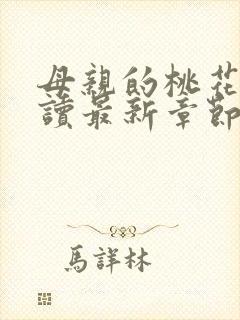 母親的桃花
讀最新章節
馬詳林